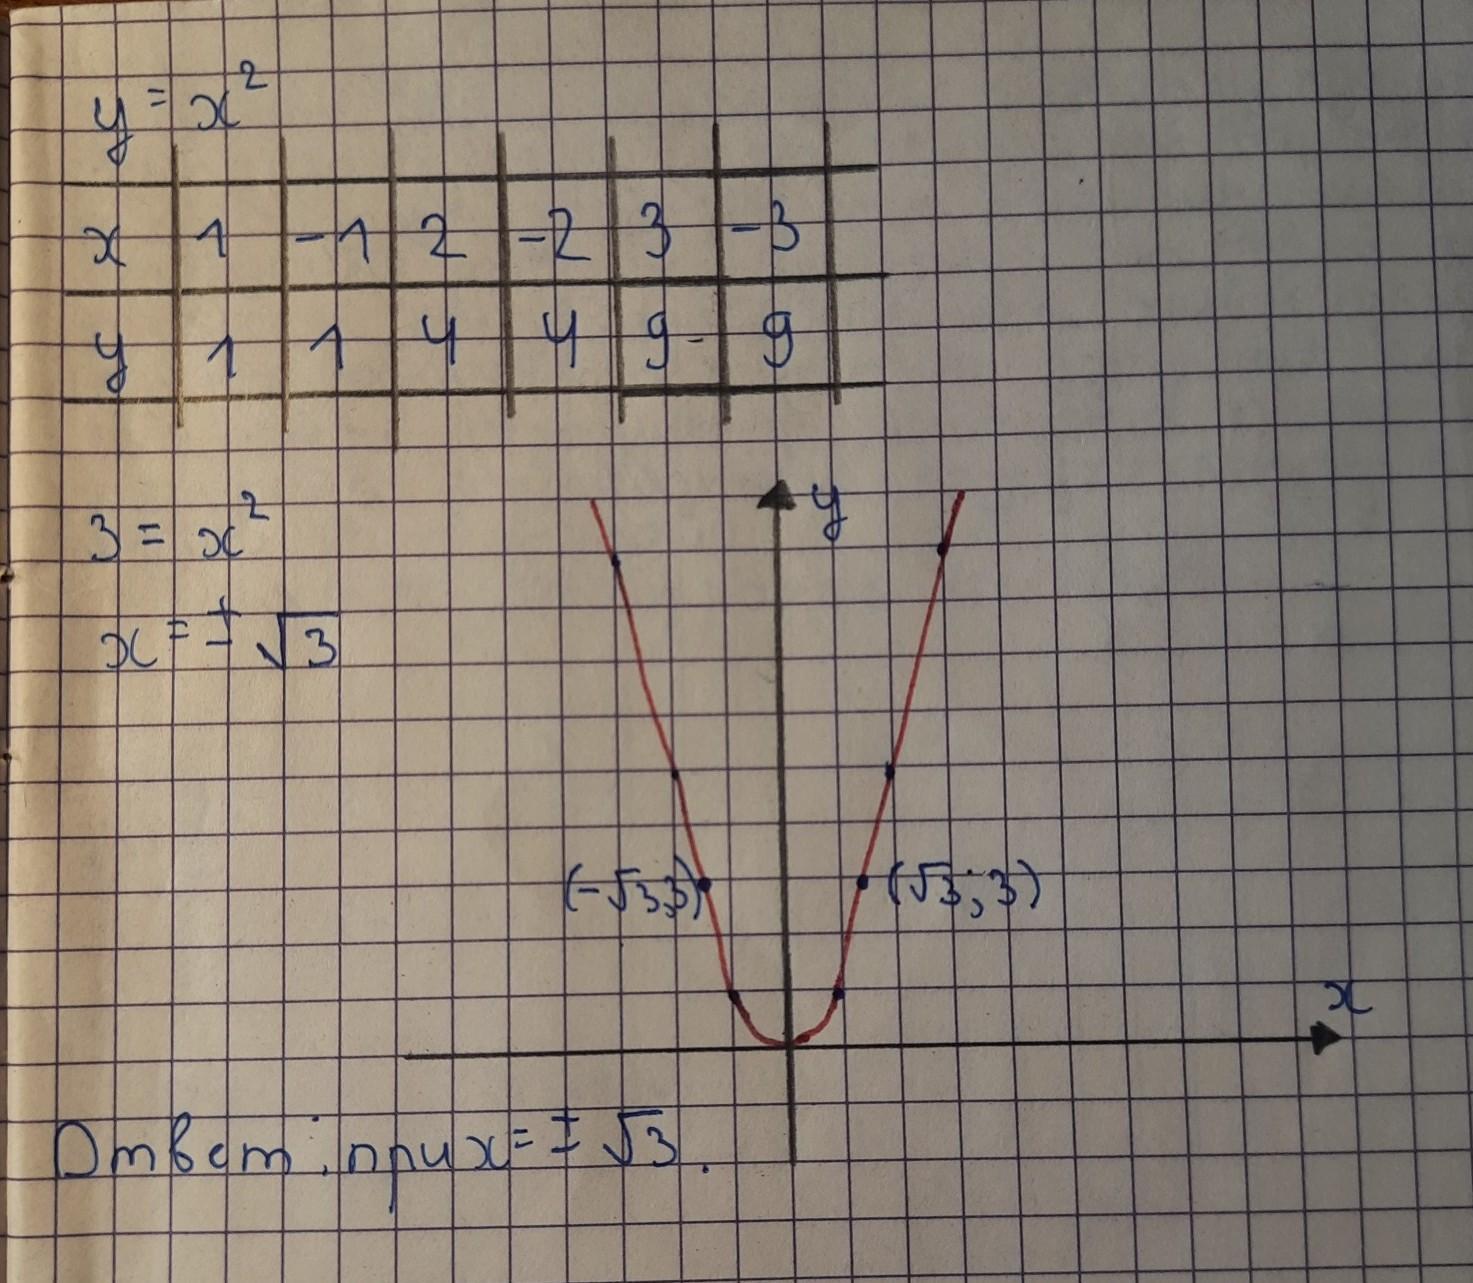 y = x²
x 1 -1 2 -2 3 -3
y 1 1 4 4 9 9
3 = x²
x = ± √3
y
(-√3;3) (√3; 3)
x
Ответ: при x = ± √3.